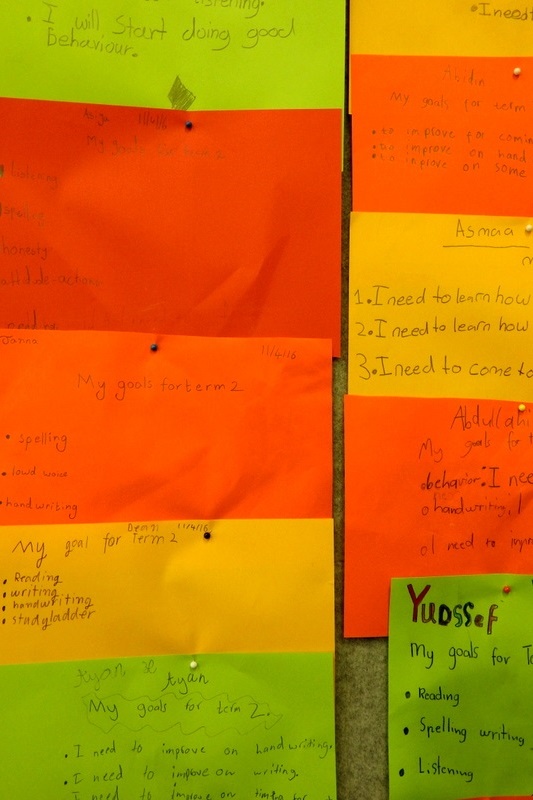 Listening.
• I will Start doing good
Behaviour.
11/4/16
My goals for term 2
listening
spelling
honesty
attitude-actions
Janna
11/4/16
My goals for term 2
• spelling
• lowd voice
• handwriting
11/4/16
My goal for Term 2
• Reading
• writing
• handwriting
• studyladder
tyan
My goals for term 2.
• I need to improve on handwriting.
• I need to improve on writing.
• I need to improve on timing for
• I need
Abidin
My goals for term
• to improve for comin
• to improve on hand
• to inprove on some
Asmaa
1. I need to learn how
2. I need to learn how
3. I need to come to
Abdullahi
My goals for t
behavior: I nee
handwriting, I
I need to impr
Yuossef
My goals for Te
• Reading
• Spelling writing
• Listening